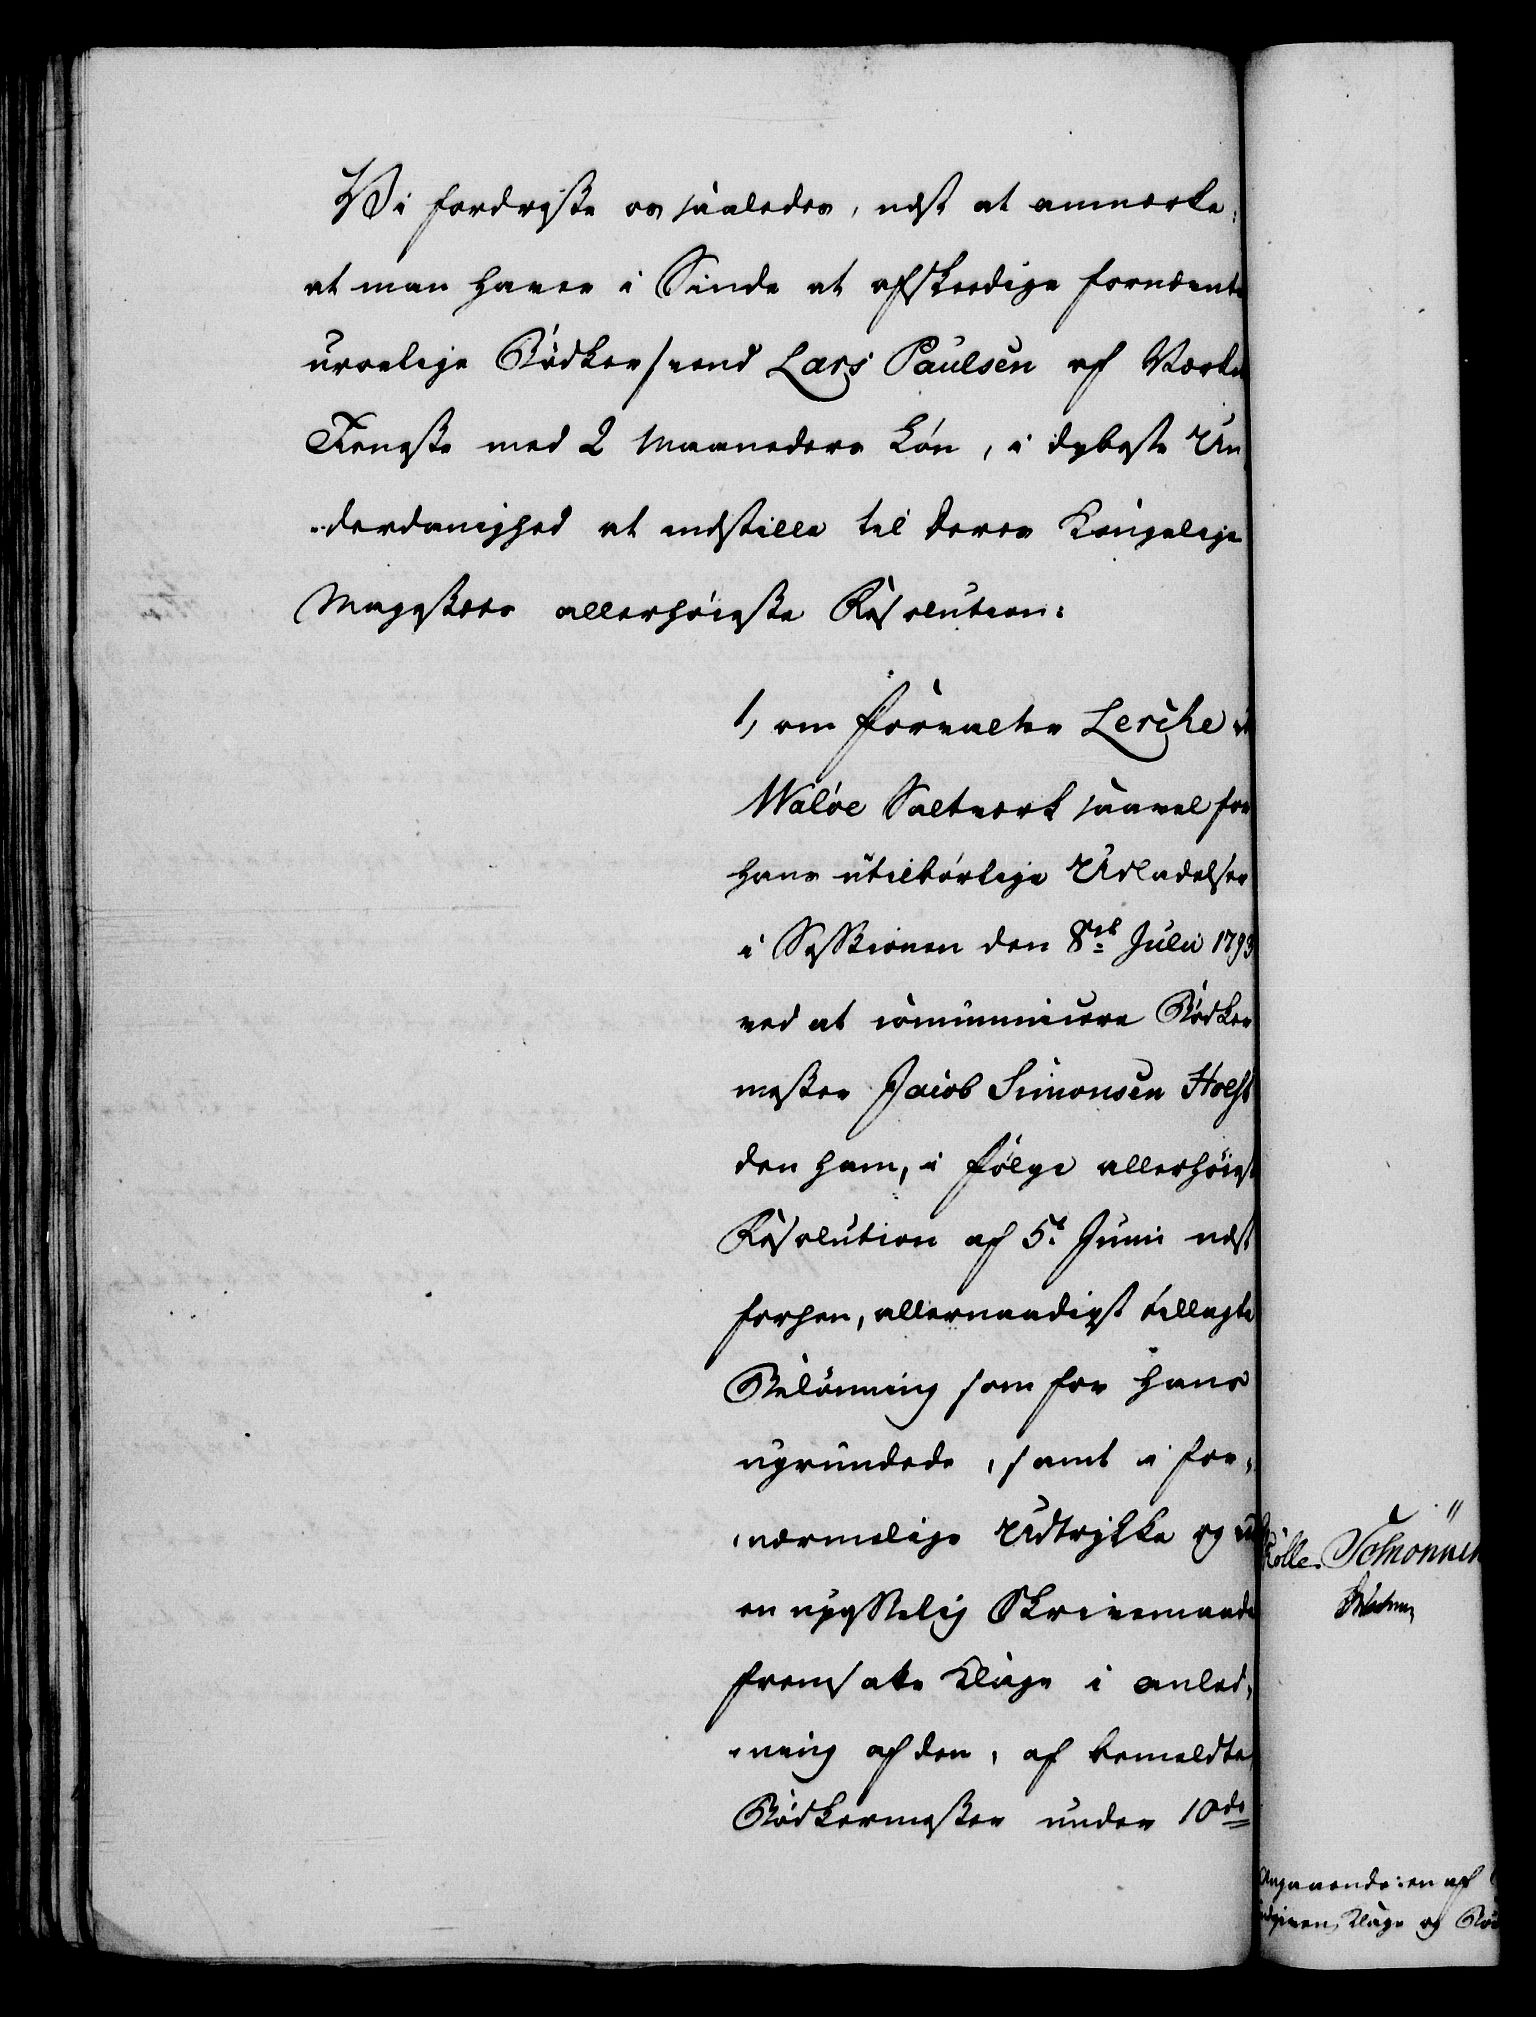 Vi fordriste os saaledes, nest at anmerke,
at man haver i Sinde at afskedige fornævnte
uroelige Bødkersvend Lars Paulsen af Værkets
Tieneste med 2 Maaneders Løn, i dybeste Un
derdanighed at indstille til Deres Kongelige
Majestæts allerhöieste Resolution:
1, om Forvalter Lerche ved
Waløe Saltverk saavel for
hans utilbørlige Udladelser
i Sessionen den 8de Julii 1793
ved at communicere Bødker
mester Jacob Simonsen Holst
den ham, i Følge allerhöieste
Resolution af 5te Junii nest
forhen, allernaadigst tillagte
Belönning som for hans
ugrundede, samt i for-
nærmelige Udtrykke og
en upasselig Skrivemaade
fremsatte Klage i Anled-
ning af den, af bemeldte
Bødkermester under 10de
Schønnen
Angaaende: en af
indgiven Klage og Bød